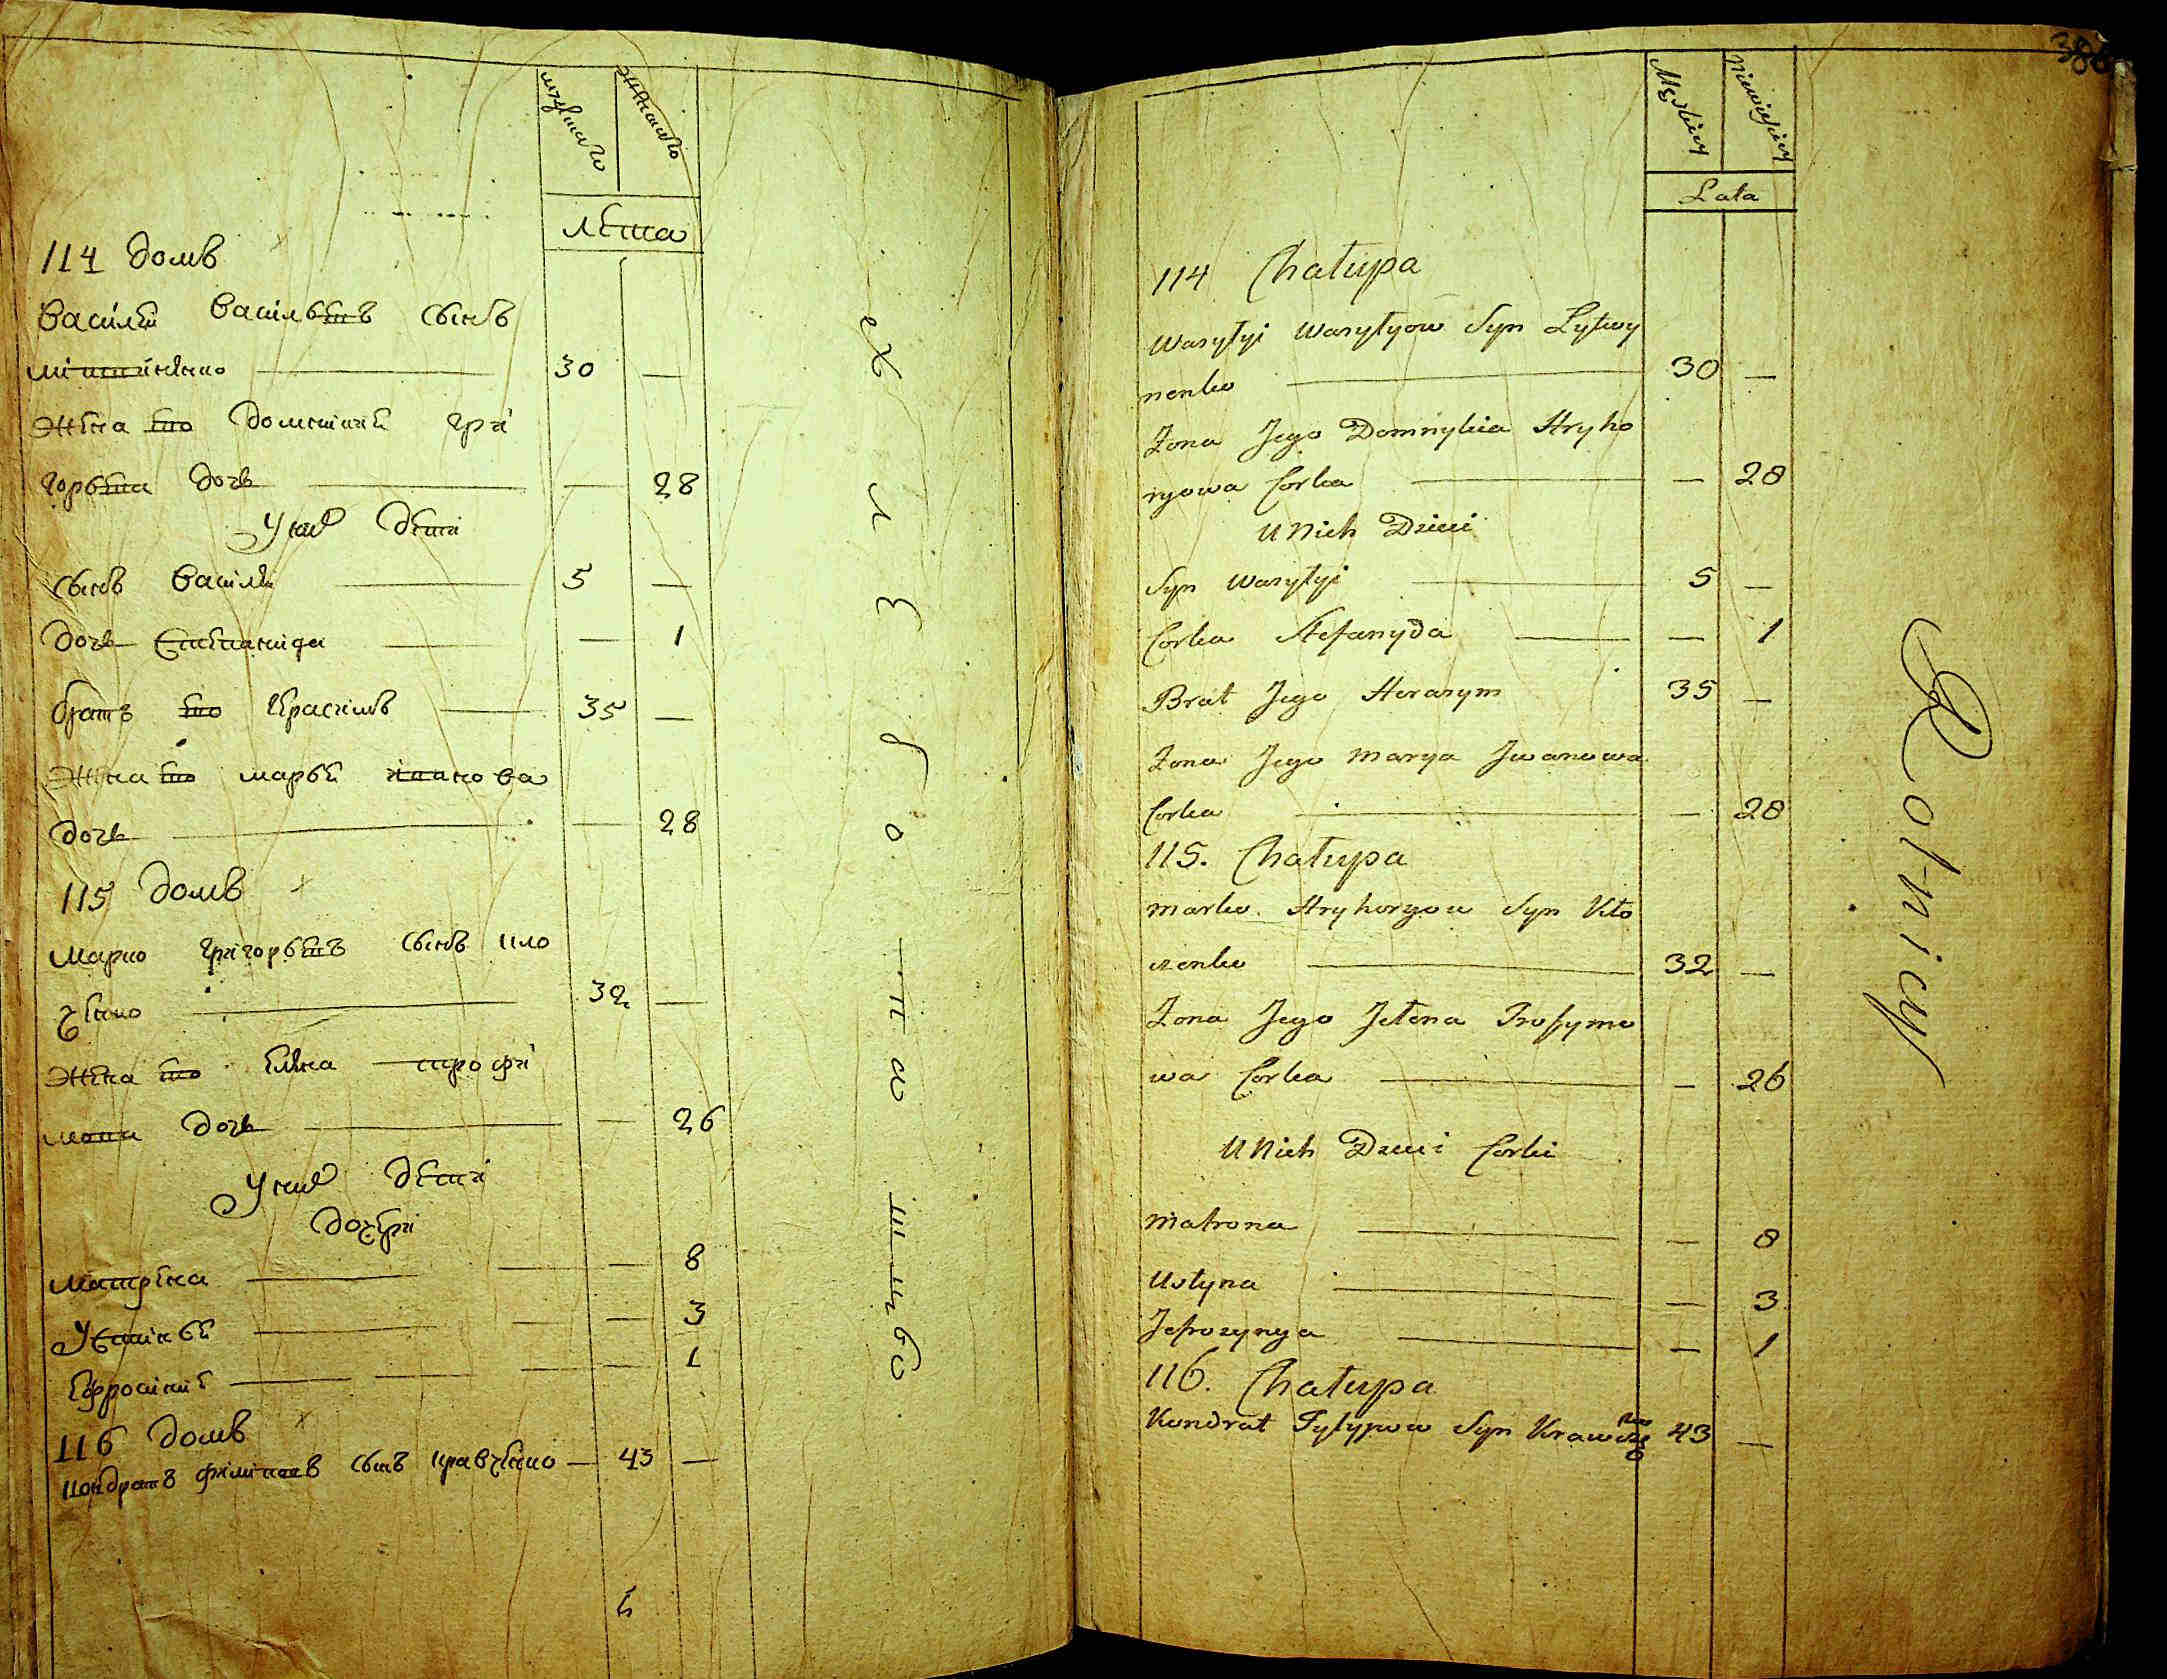 мужеска
женска
Лета
114 домъ
Василей Васильевъ сынъ
женка его Домникия Гри
горьева дочь
30 —
— 28
У них дети
сынъ Василей 5 —
дочь Степанида — 1
братъ его Герасимъ 35 —
жена его Марья Иванова
дочь — 28
115 домъ
Марко Григорьевъ сынъ Кло
ченко 32 —
жена его Елена Трофи
мова дочь — 26
У них дети
дочери
Матрена — 8
Устинья — 3
Ефросиния — 1
116 домъ
Кондратъ Филиповъ сынъ Кравченко — 43 —
хлебо-пашцы
388
Męskiey
Niewieściey
Lata
114 Chałupa
Wasyłyi Wasyłyow Syn Łytwy
nenko 30 —
Zona Jego Domnykia Hryho
ryowa Corka — 28
U Nich Dzieci
Syn Wasyłyi 5 —
Corka Stefanyda — 1
Brat Jego Herasym 35 —
Zona Jego Marya Jwanowa
Corka — 28
115. Chałupa
Marko Hryhoryow Syn Kło
czenko 32 —
Zona Jego Jełena Trofymo
wa Corka — 26
U Nich Dzieci Corki
Matrona — 8
Ustyna — 3
Jefrozynya — 1
116. Chałupa
Kondrat Fyłypow Syn Krawczenko 43 —
Rolnicy